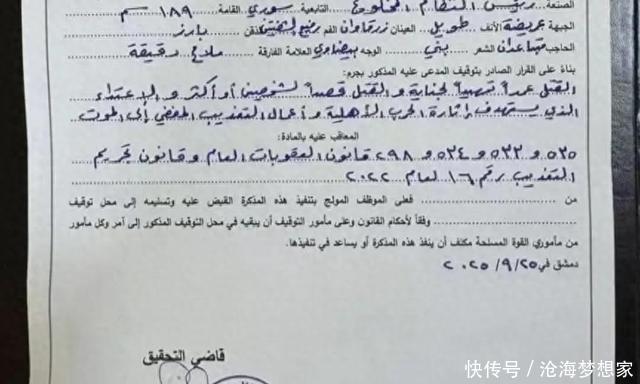 الصنعة رئيس النظام المخلوع التابعية سوري القامة ١٨٩ سم
الجبهة عريضة الأنف طويل العينان زرقاوان الفم رفيع الشفتين الذقن بارز
الحاجب الشعر بني الوجه بيضاوي العلامة الفارقة ملامح دقيقة
بناءً على القرار الصادر بتوقيف المدعى عليه المذكور بجرم:
القتل عمداً تمهيداً لجناية والقتل قصداً لشخصين أو أكثر و الاعتداء
الذي يستهدف إثارة الحرب الأهلية و أعمال التعذيب المفضي إلى الموت
المعاقب عليه بالمادة:
٥٣٥ و ٥٣٣ و ٥٣٤ و ٢٩٨ قانون العقوبات العام و قانون تجريم
التعذيب رقم ١٦ لعام ٢٠٢٢
من فعلى الموظف المولج بتنفيذ هذه المذكرة القبض عليه وتسليمه إلى محل توقيف
وفقاً لأحكام القانون وعلى مأمور التوقيف أن يبقيه في محل التوقيف المذكور إلى آمر وكل مأمور
من مأموري القوة المسلحة مكلف أن ينفذ هذه المذكرة أو يساعد في تنفيذها.
دمشق في ٢٠٢٥/٩/٢٥
قاضي التحقيق
快传号 / 沧海梦想家